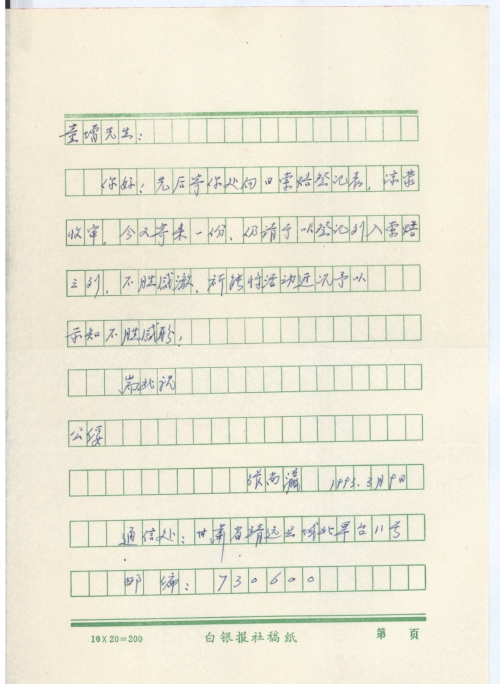 童增先生：
你好！先后寄你处向日索赔登记表，谅蒙
收审，今又寄来一份，仍请予以登记列入索赔
之列，不胜感激，祈请将活动近况予以
示知不胜感盼，
耑此祝
公绥
张尚瀛 1993.3月9日
通信处：甘肃省靖远县城北旱台11号
邮编：730600
10×20=200 白银报社稿纸 第 页